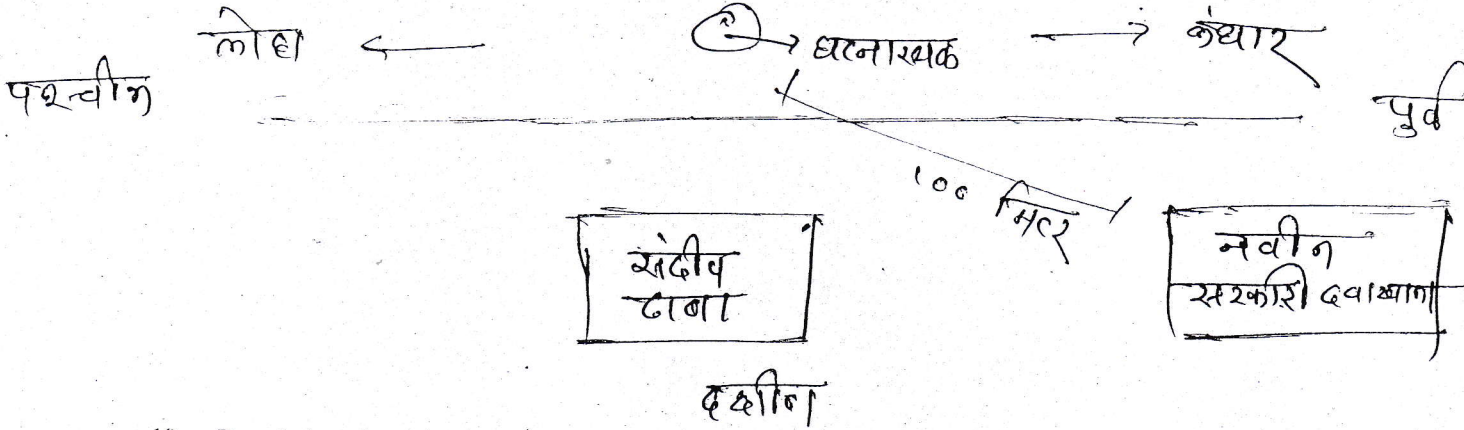 लोहा
घटनास्थळ
कंधार
पश्चीम
पुर्व
१०० मिटर
संदीप
ढाबा
नवीन
सरकारी दवाखाना
दक्षीण